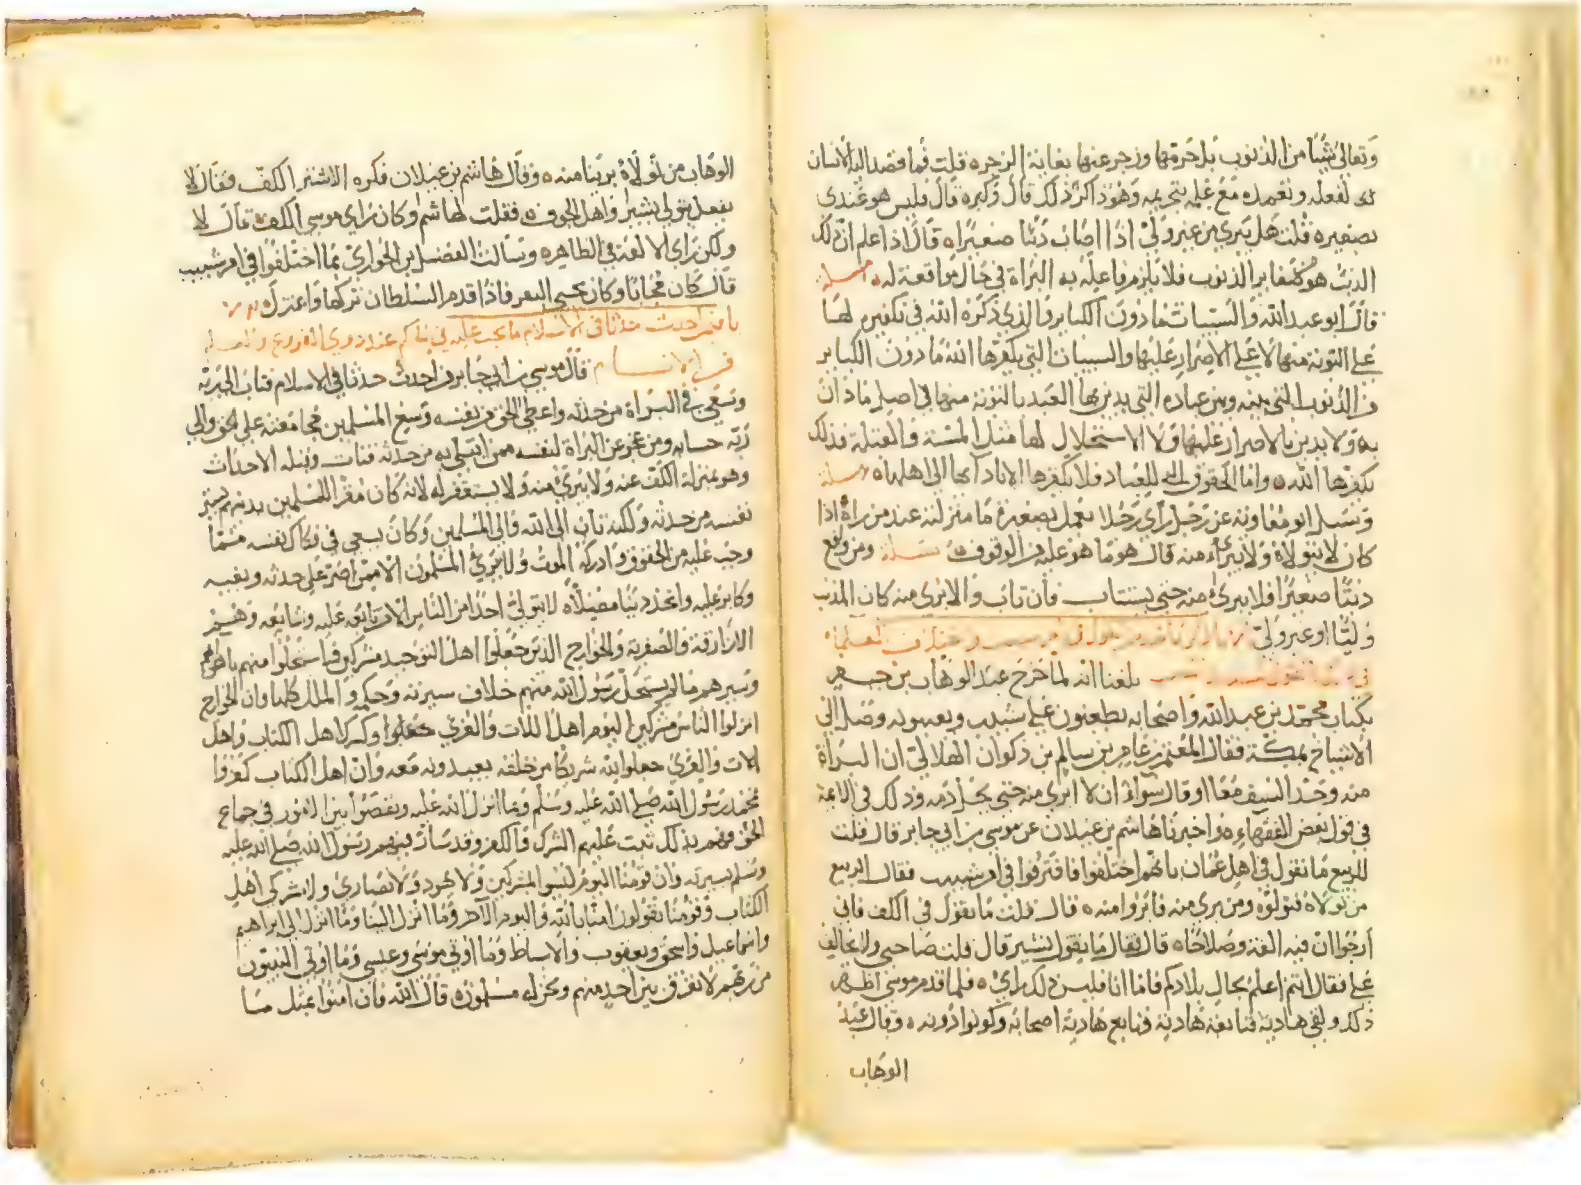 وتعالى شيئا من الذنوب بل حرمها وزجر عنها بغاية الزجر ه قلت فما قصد اليه الانسان
لفعله وتعمده مع علمه بتحريمه وهو ذاكر لذلك قال وكبره قال فليس هو عندي
بصغيره قلت هل يبرى من غير ولي اذا اصاب ذنبا صغيرا ه قال اذا علم ان ذلك
الذنب هو من صغاير الذنوب فلا يلزم فاعله به البراة في حال مواقعة له ه مسلة
قال ابو عبدالله والسيئات ما دون الكبائر والذي ذكره الله في تكفيره لها
على التوبة منها لا على الاصرار عليها والسيئات التي يكفرها الله ما دون الكبائر
من الذنوب التي بينه وبين عباده التي يدين بها العبد بالتوبة منها في اصل ما دان
به ولا يدين بالاصرار عليها ولا الاستحلال لها مثل المسة والقبلة فذلك
يكفرها الله ه واما الحقوق التي للعباد فلا يكفرها الا اداها الى اهلها ه مسلة
وسئل ابو معاوية عن رجل راى رجلا يعمل بصغيرة ما منزلته عند من راه اذا
كان لا يتولاه ولا يبرى منه قال هو ما هو عليه من الوقوف ه مسلة ومن واقع
ذنبا صغيرا فلا يبرى منه حتى يستتاب فان تاب والا برى منه كان المذنب
وليا او غير ولي
بلغنا انه لما خرج عبد الوهاب بن
بكتاب محمد بن عبدالله واصحابه يطعنون على شبيب ويعيبونه وصل الى
الاشياخ بمكة فقال المعتمر بن عامر بن سالم بن ذكوان الهلالي ان البراة
منه وحد السيف معا او قال سواء ان لا ابرى منه حتى يحل دمه وذلك في الائمة
في قول بعض الفقهاء ه واخبرنا هاشم بن غيلان عن موسى بن ابي جابر قال قلت
للربيع ما تقول في اهل عمان فانهم اختلفوا فافترقوا في امر شبيب فقال الربيع
من تولاه فتولوه ومن برى منه فابروا منه ه قال قلت ما تقول في الكف فاني
ارجوا ان فيه الفة وصلاحا ه قال فقال ما يقول بشير قال قلت صاحبي ولا يخالف
علي فقال انتم اعلم بحال بلادكم فاما انا فليس ذلك برايي ه فلما قدم موسى اظهر
ذلك ولقي هادية فتابعه هادية وتابع هادية اصحابه وكونوا دونه ه وقال عبد
الوهاب
الوهاب من تولاه برينا منه ه وقال هاشم بن غيلان فكره الاشتر الكف فقال لا
نفعل يتولى بشير واهل الجوف ه فقلت لهاشم وكان راي موسى الكف ه قال لا
ولكن راى الالفة في الظاهر ه وسالت الفضل بن الحواري عما اختلفوا في امر شبيب
قال كان محابا وكان يجبي البعر فاذا قدم السلطان تركها واعتزل ه
باب فيمن احدث حدثا في الاسلام ما يجب عليه
من الانسام قال موسى بن ابي جابر من احدث حدثا في الاسلام فتاب الى ربه
وسعى في البراة من حدثه واعطى الحق من نفسه وسع المسلمين مجامعته على الحق والى
ربه حسابه ومن عجز عن البراة لنفسه ممن ابتلي به من حدثه فتاب وقبله الاحداث
وهو بمنزلة الكف عنه ولا يبرى منه ولا يستغفر له لانه كان مقرا للمسلمين بدينهم
نفسه من حدثه ولكنه تاب الى الله والى المسلمين وكان يسعى في فكاك نفسه مما
وجب عليه من الحقوق وادركه الموت ولا يبرى المسلمون الا ممن اصر على حدثه وبغيه
وكابر عليه واتخذ دينا مضيلا ه لا يتولى احدا من الناس الا من بايعه عليه وشايعه وهم
الازارقة والصفرية والخوارج الذين جعلوا اهل التوحيد مشركين فاستحلوا منهم باظهرهم
وسيرهم ما لم يستحل رسول الله منهم خلاف سيرته وحكمه والملل كلها وان الخوارج
انزلوا الناس مشركين اليوم اهل اللات والعزى جعلوا وكذلك اهل الكتاب واهل
اللات والعزى جعلوا لله شريكا من خلقه يعبدونه معه وان اهل الكتاب كفروا
بمحمد رسول الله صلى الله عليه وسلم وبما انزل الله عليه ونقضوا بين الامور في جماع
الحق فيهم بذلك ثبت عليهم الشرك والكفر وقد سار فيهم رسول الله صلى الله عليه
وسلم بسيرته وان قومنا اليوم ليسوا المشركين ولا يهود ولا نصارى ولا مشركي اهل
الكتاب وقومنا يقولون امنا بالله واليوم الآخر وما انزل الينا وما انزل الى ابراهيم
واسماعيل واسحق ويعقوب والاسباط وما اوتي موسى وعيسى وما اوتي النبيون
من ربهم لا نفرق بين احد منهم ونحن له مسلمون ه قال الله فان امنوا بمثل ما